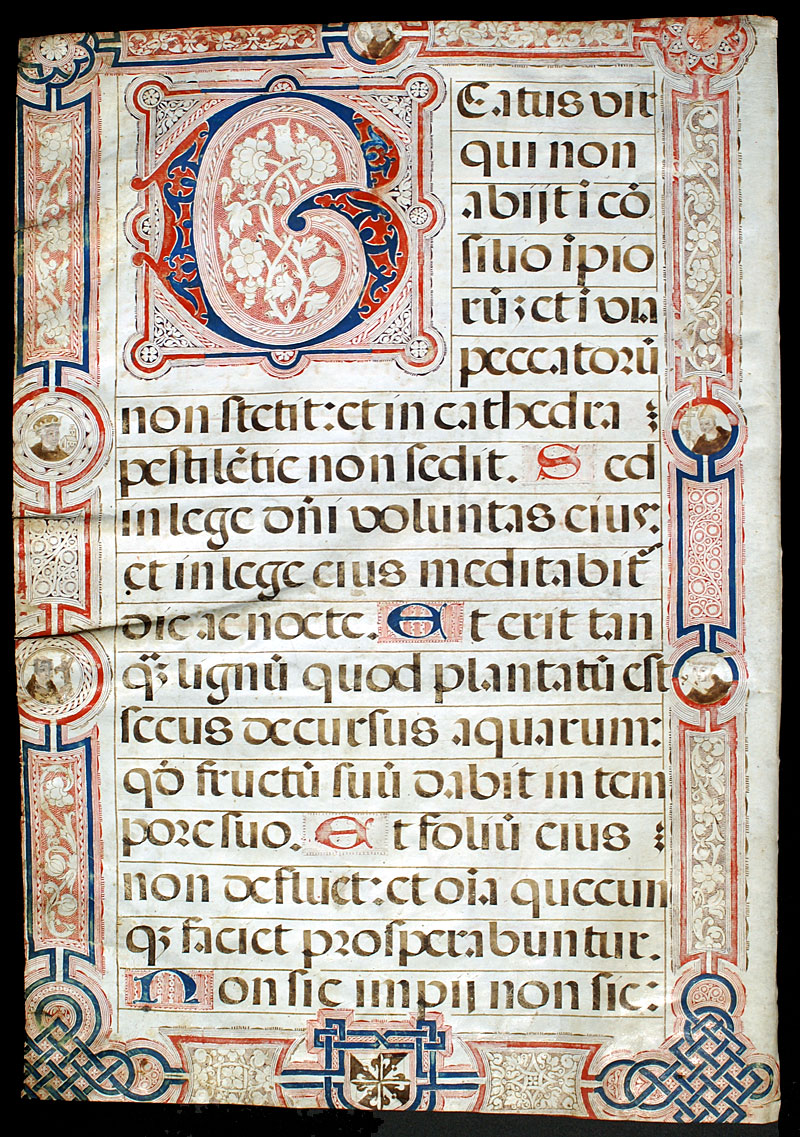 BEatus vir
qui non
abijt i cõ
silio ĩpio
rũ: et i via
peccatorũ
non stetit: et in cathedra
pestilẽtie non sedit. Sed
in lege dñi voluntas eius:
et in lege eius meditabit᷑
die ac nocte. Et erit tan
qȝ̃ lignũ quod plantatũ est
secus decursus aquarum:
qđ fructũ suũ dabit in tem
pore suo. Et foliũ eius
non defluet: et oĩa quecun
qȝ faciet prosperabuntur.
Non sic impij non sic: